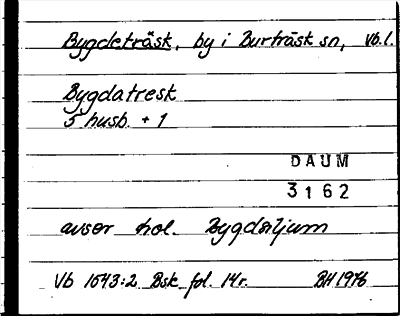 Bygdeträsk, by i Burträsk sn, Vb.l.
Bygdatresk
5 husb. + 1
DAUM
3162
avser hol. Bygdsiljum
Vb 1543:2 Bsk fol. 14r. BH 1976